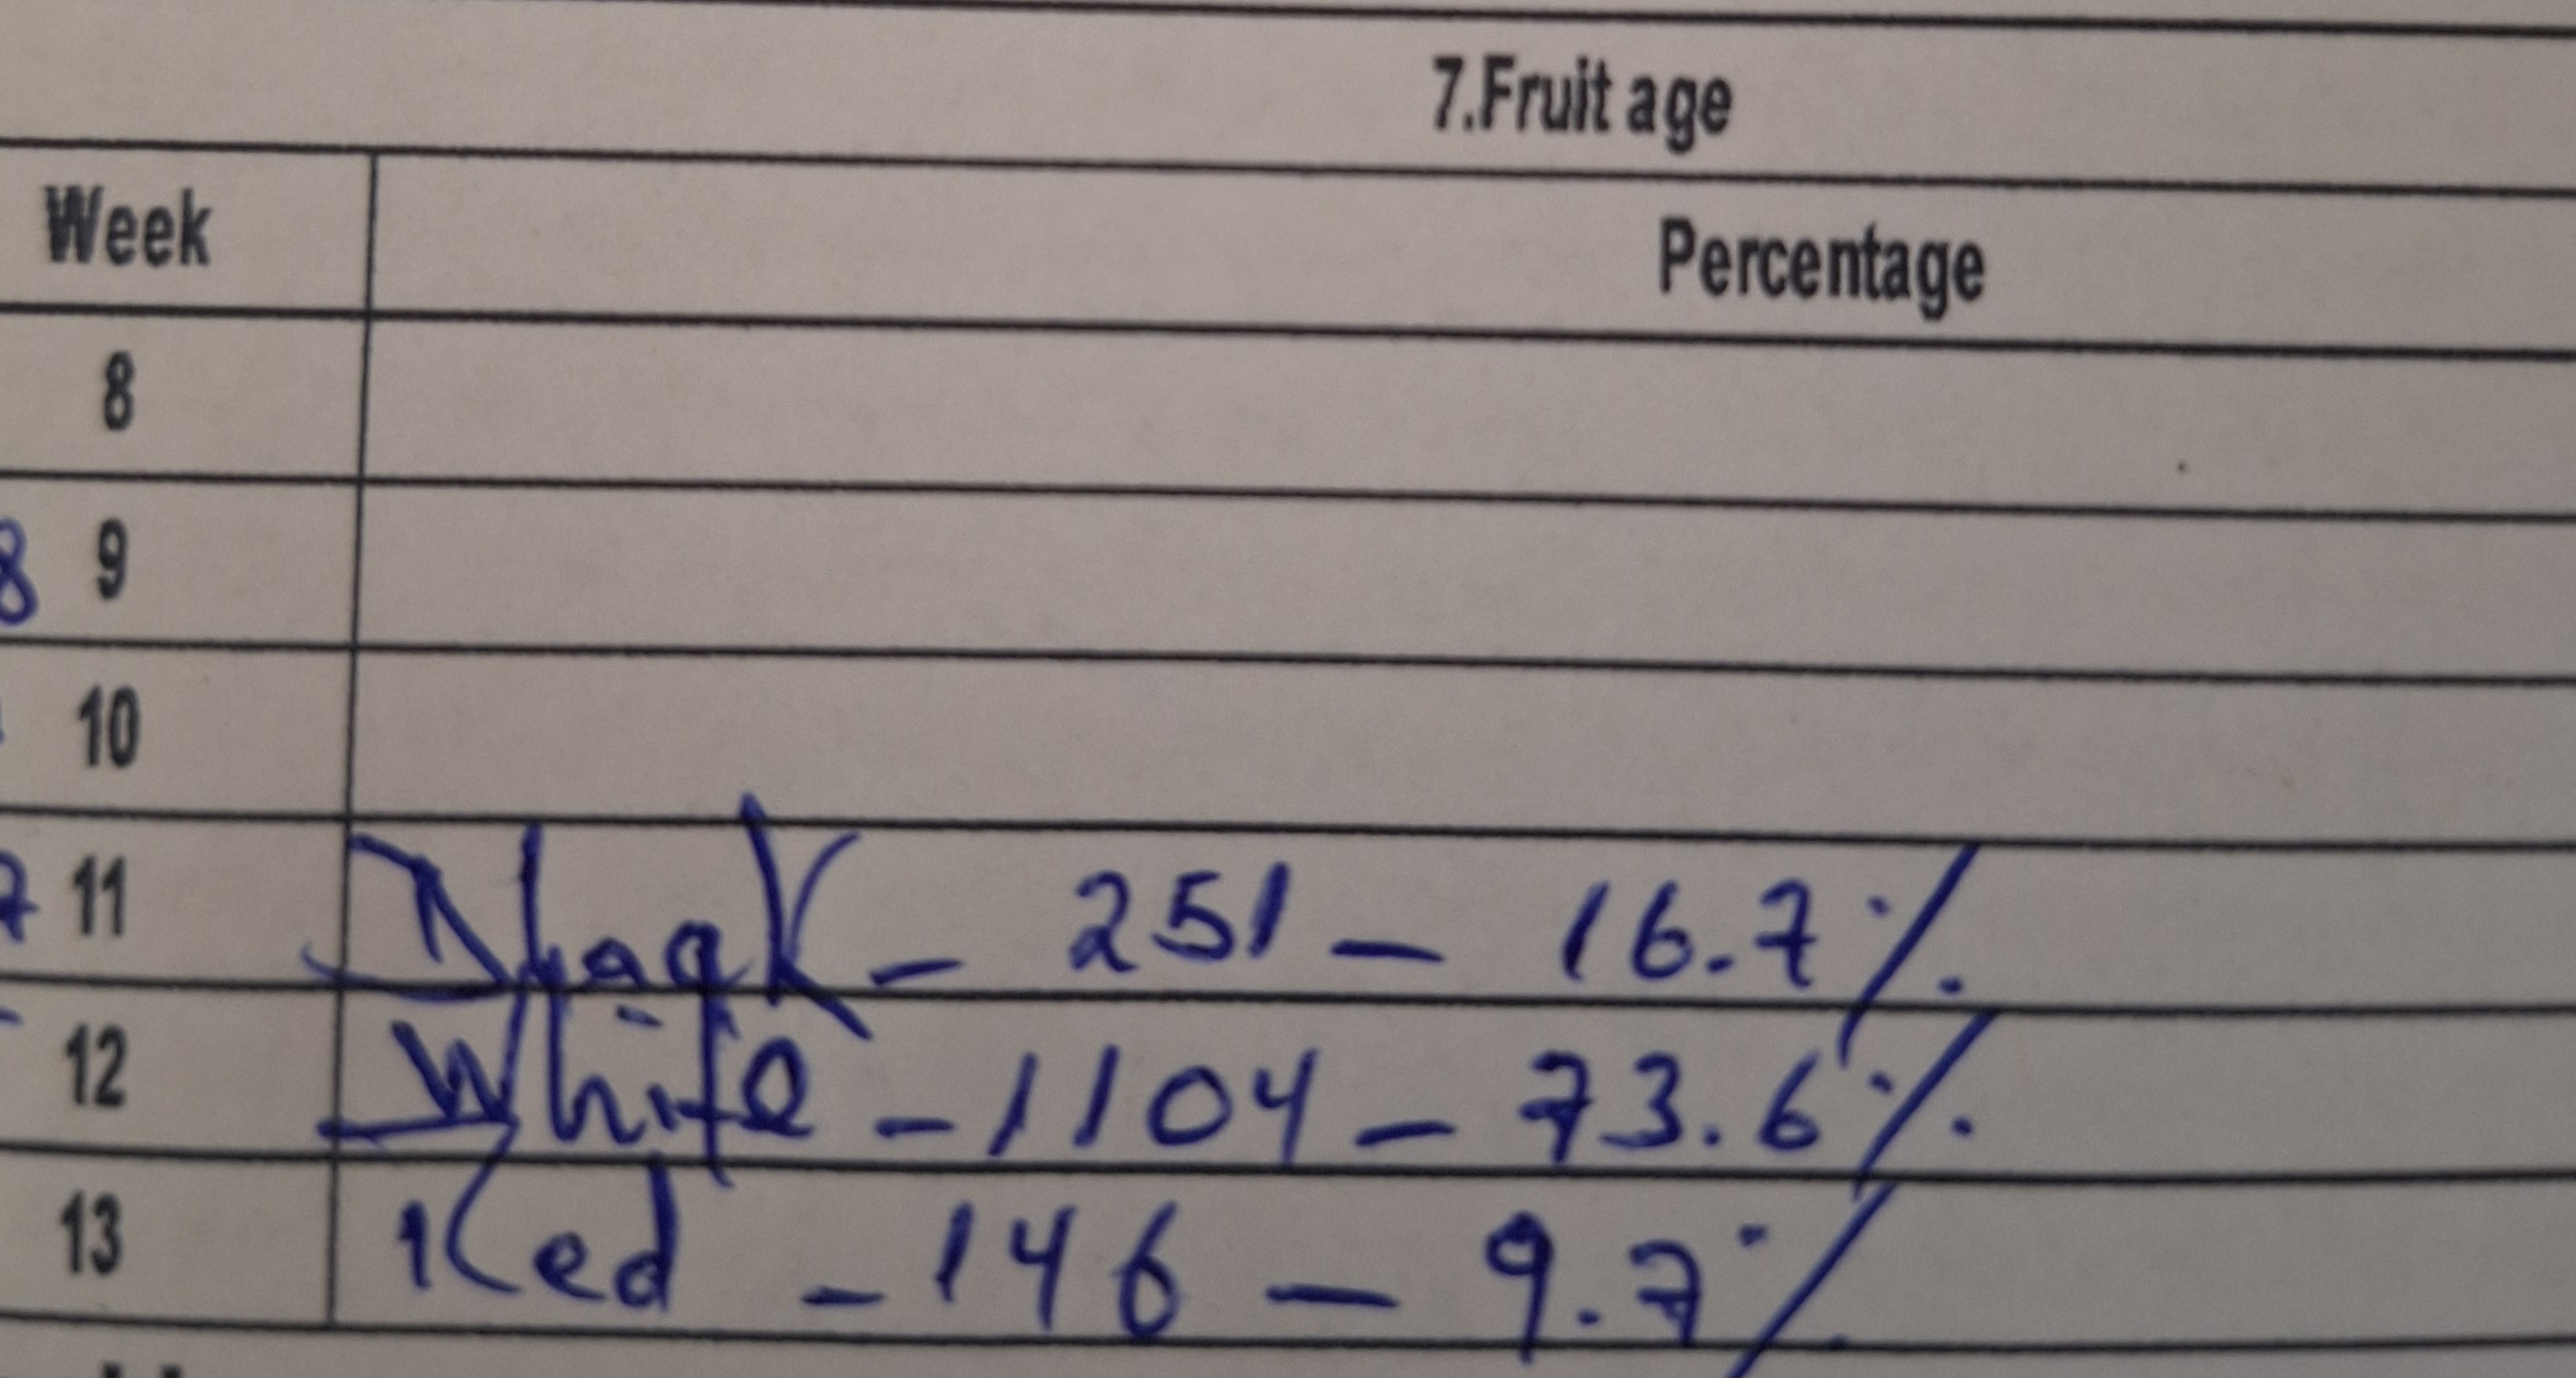 7.Fruit age
Week Percentage
8
8 9
10
7 11 Black - 251 - 16.7%
12 White - 1104 - 73.6%
13 Red - 146 - 9.7%